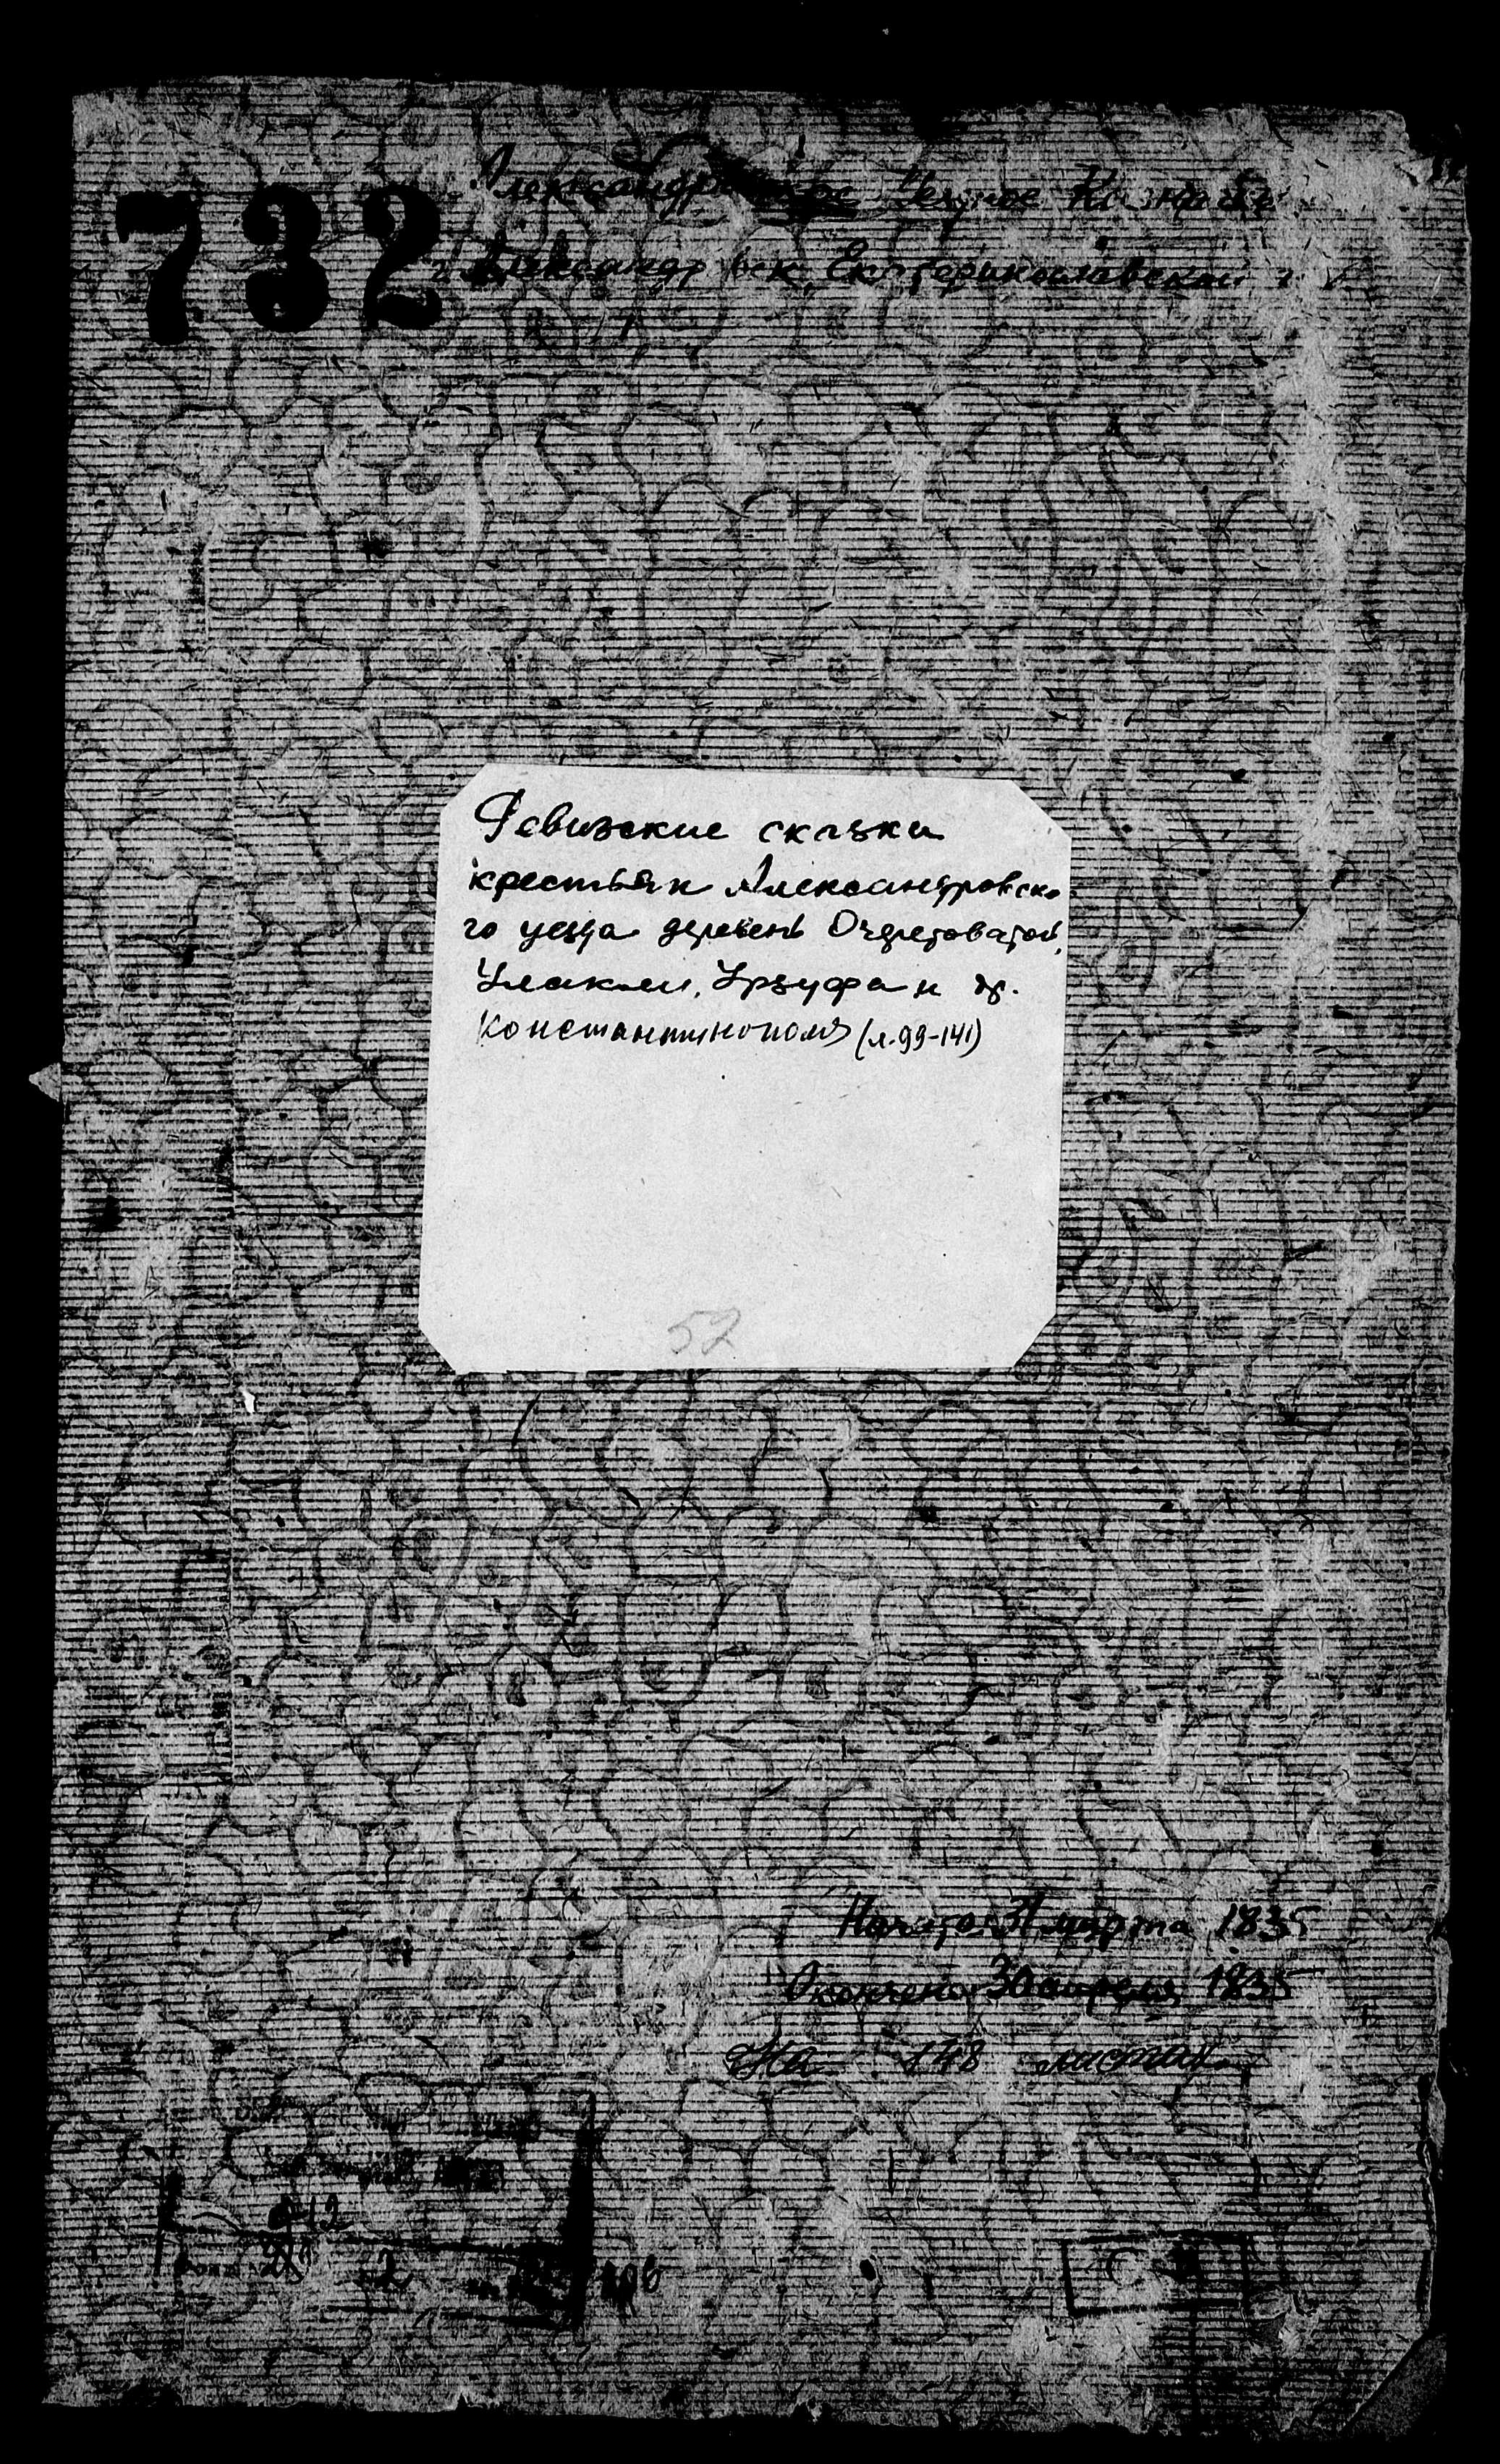 732
Александровское Уездное Казнач
г. Александровск, Екатеринославской г.
Ревизские сказки
крестьян Александровско-
го уезда деревень Очеретоватой,
Улакли, Урзуфа и др.
Константинополя (л. 99-141)
52
Начато 31 марта 1835
Окончено 30 апреля 1835
На 148 листах